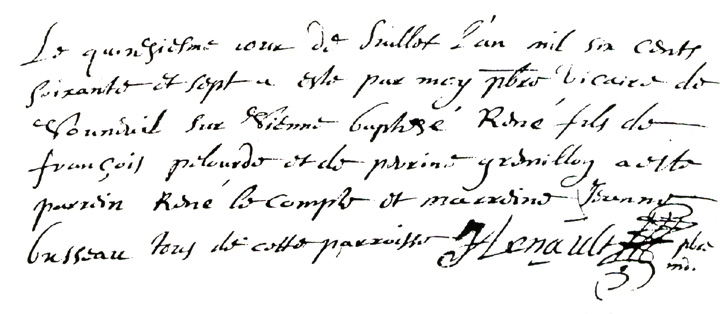 Le quinziesme iour de Juillet l'an mil six cents
soixante et sept a esté par moy pbre vicaire de
Vouneuil sur Vienne baptizé René fils de
françois pelourde et de perrine grenillon a esté
parrein René le compte et marreine Jeanne
busseau tous de cette parroisse Henault pbre
ind.